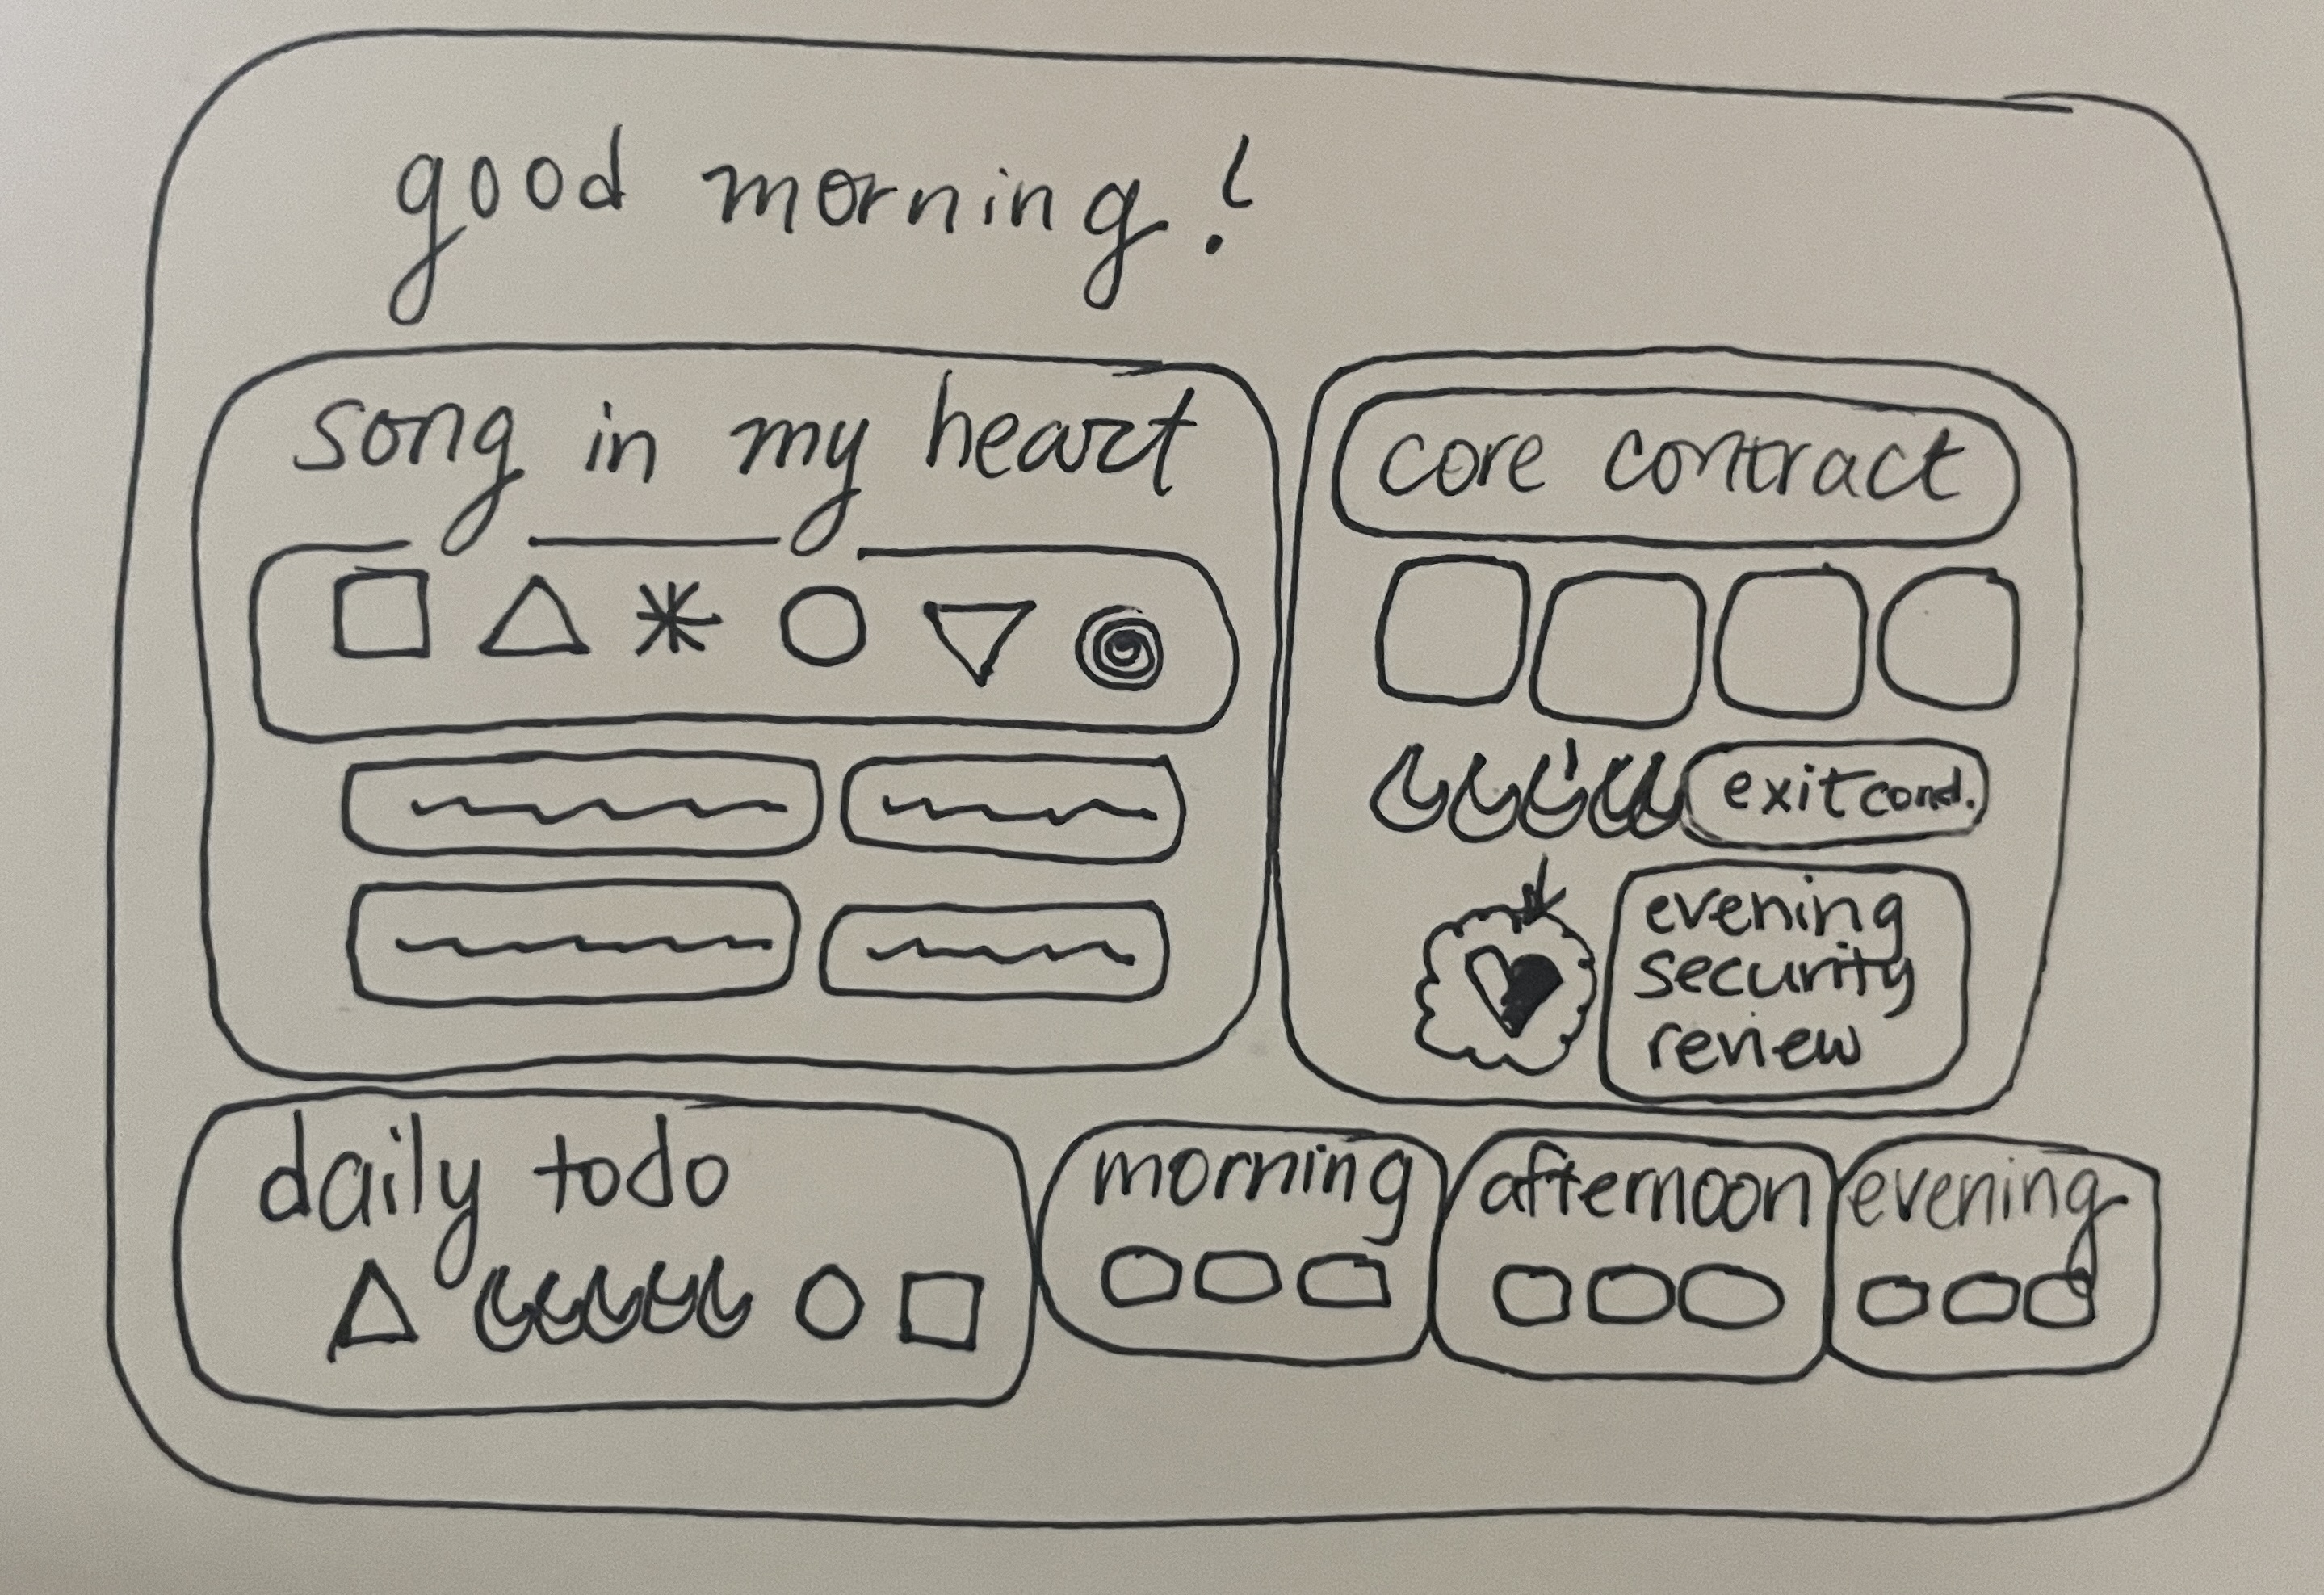 good morning!
song in my heart
core contract
exit cond.
evening
security
review
daily todo
morning
afternoon
evening